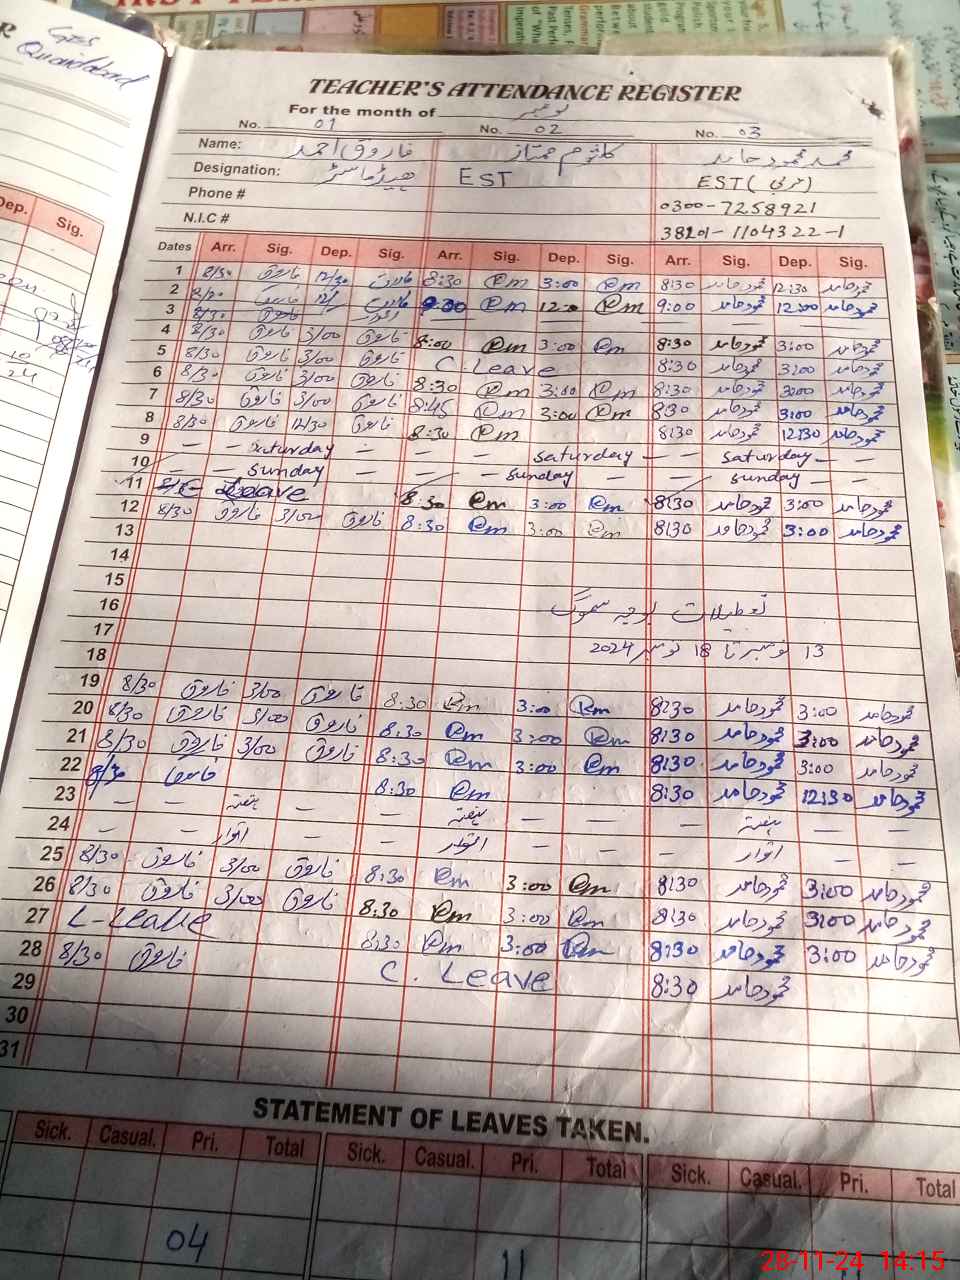 GES
Quaidabad
TEACHER'S ATTENDANCE REGISTER
For the month of نومبر
No. 01 No. 02 No. 03
Name: فاروق احمد کلثوم ممتاز محمد محمود حامد
Designation: ہیڈماسٹر EST EST (عربی)
Phone # 0300-7258921
N.I.C # 38201-1104322-1
Dep. Sig.
Dates Arr. Sig. Dep. Sig. Arr. Sig. Dep. Sig. Arr. Sig. Dep. Sig.
1 8/30 فاروق 12/30 فاروق 8:30 @m 3:00 @m 8:30 محمود حامد 12:30 محمود حامد
2 8/30 فاروق 12/ فاروق 9:00 @m 12:00 @m 9:00 محمود حامد 12:00 محمود حامد
3 8/30 فاروق اتوار
4 8/30 فاروق 3/00 فاروق 8:00 @m 3:00 @m 8:30 محمود حامد 3:00 محمود حامد
5 8/30 فاروق 3/00 فاروق C. Leave 8:30 محمود حامد 3:00 محمود حامد
6 8/30 فاروق 3/00 فاروق 8:30 @m 3:00 @m 8:30 محمود حامد 3:00 محمود حامد
7 8/30 فاروق 3/00 فاروق 8:45 @m 3:00 @m 8:30 محمود حامد 3:00 محمود حامد
8 8/30 فاروق 12/30 فاروق 8:30 @m 8:30 محمود حامد 12:30 محمود حامد
9 — — saturday — — — saturday — — saturday — —
10 — — sunday — — — sunday — — sunday — —
11 C Leave 8:30 @m 3:00 @m 8:30 محمود حامد 3:00 محمود حامد
12 8/30 فاروق 3/00 فاروق 8:30 @m 3:00 @m 8:30 محمود حامد 3:00 محمود حامد
13
14
15
16 تعطیلات بوجہ سموگ
17
18 13 نومبر تا 18 نومبر 2024
19 8/30 فاروق 3/00 فاروق 8:30 @m 3:00 @m 8:30 محمود حامد 3:00 محمود حامد
20 8/30 فاروق 3/00 فاروق 8:30 @m 3:00 @m 8:30 محمود حامد 3:00 محمود حامد
21 8/30 فاروق 3/00 فاروق 8:30 @m 3:00 @m 8:30 محمود حامد 3:00 محمود حامد
22 8/30 فاروق 8:30 @m 8:30 محمود حامد 12:30 محمود حامد
23 — — ہفتہ — — ہفتہ — — — ہفتہ — —
24 — — اتوار — — اتوار — — — اتوار — —
25 8/30 فاروق 3/00 فاروق 8:30 @m 3:00 @m 8:30 محمود حامد 3:00 محمود حامد
26 8/30 فاروق 3/00 فاروق 8:30 @m 3:00 @m 8:30 محمود حامد 3:00 محمود حامد
27 L-Leave 8:30 @m 3:00 @m 8:30 محمود حامد 3:00 محمود حامد
28 8/30 فاروق C. Leave 8:30 محمود حامد
29
30
31
STATEMENT OF LEAVES TAKEN.
Sick. Casual. Pri. Total Sick. Casual. Pri. Total Sick. Casual. Pri. Total
04 11
28-11-24 14:15